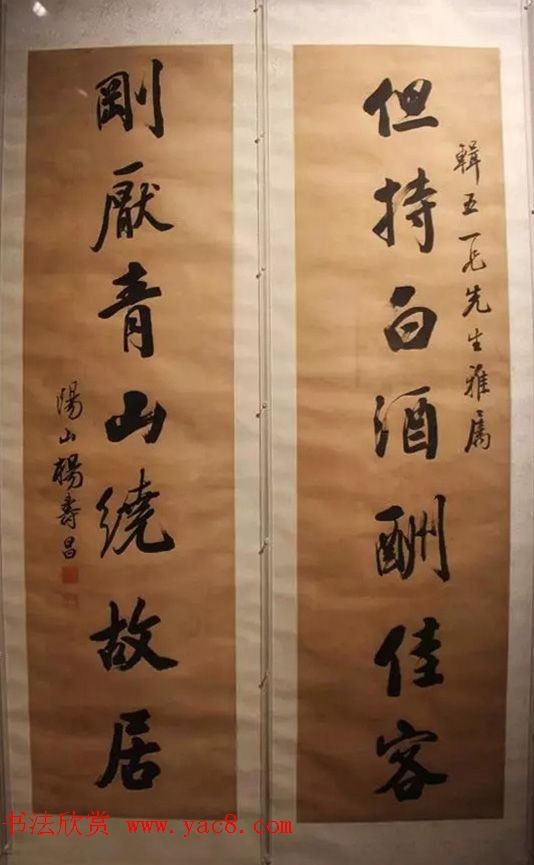 但持白酒酬佳客
輯五一兄先生雅属
剛厭青山繞故居
陽山楊壽昌
书法欣赏 www.yac8.com